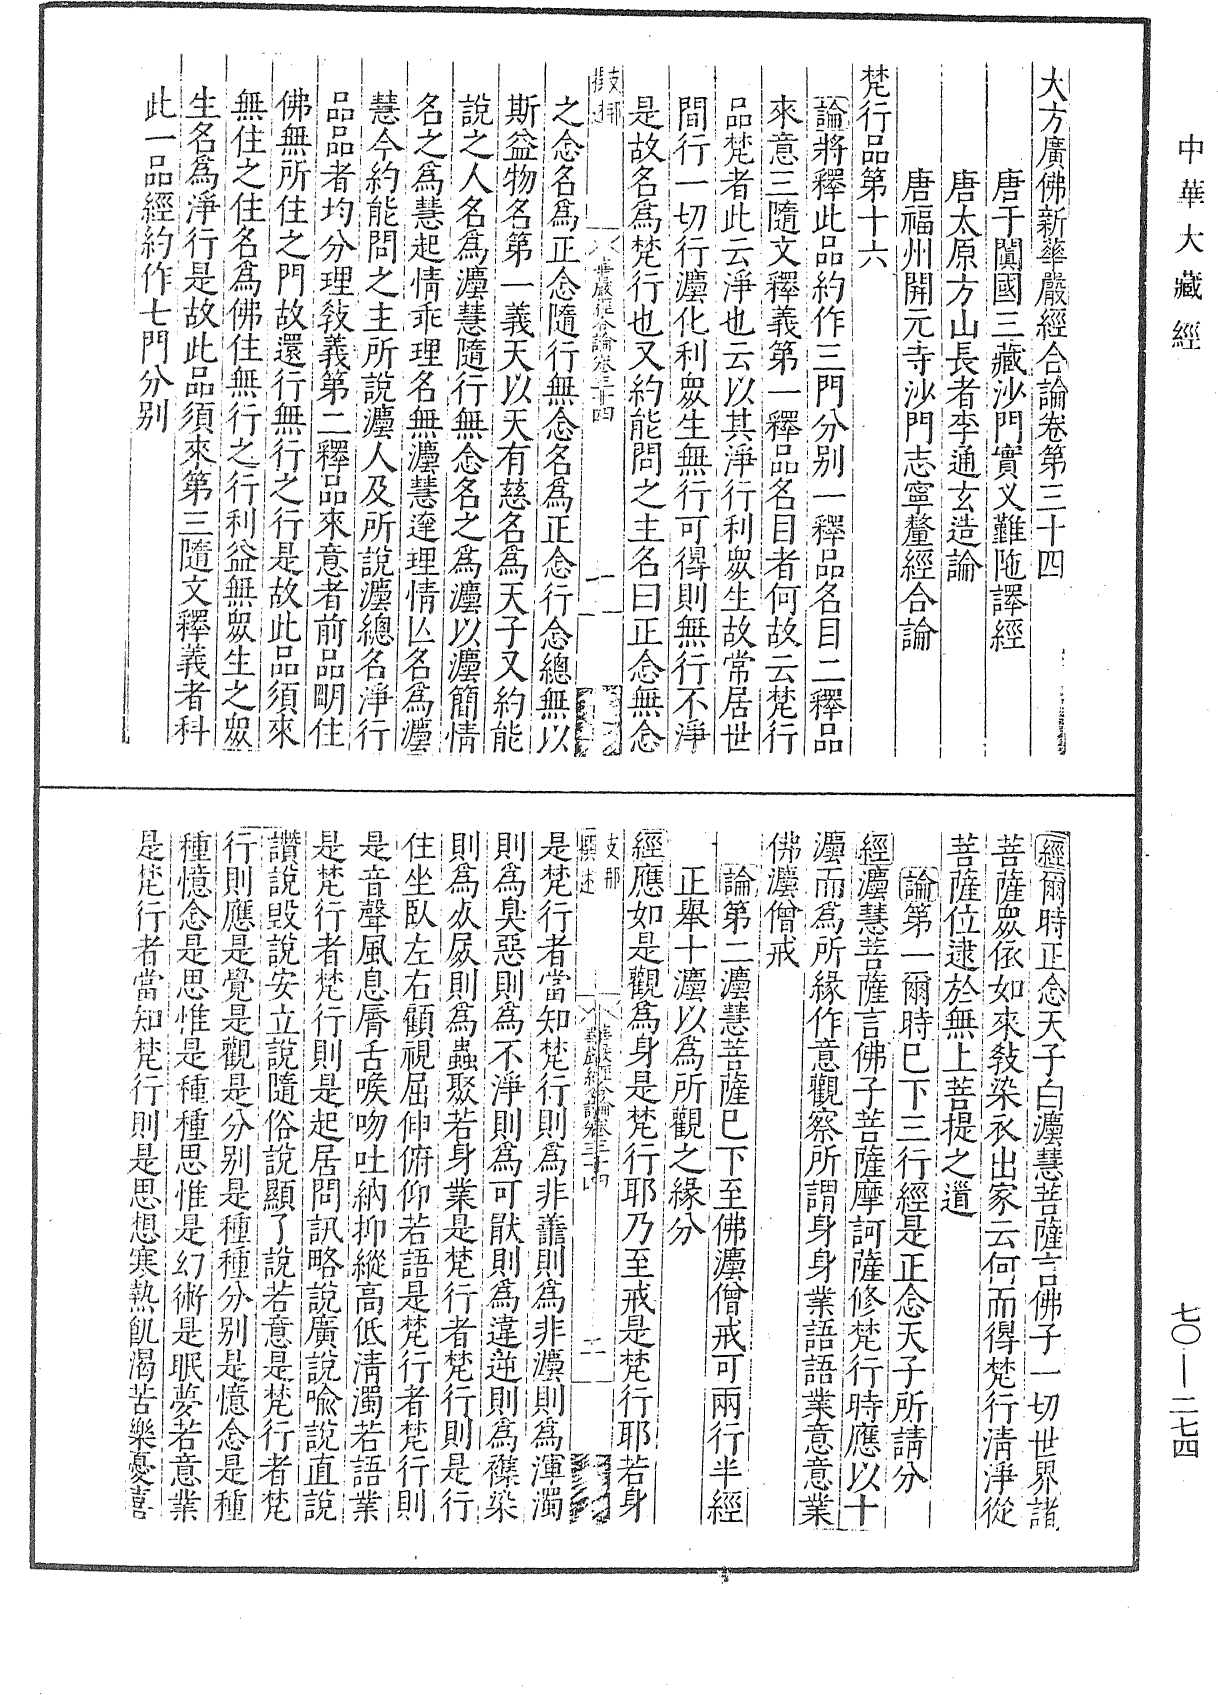 中華大藏經
大方廣佛新華嚴經合論卷第三十四
唐于闐國三藏沙門實叉難陁譯經
唐太原方山長者李通玄造論
唐福州開元寺沙門志寧釐經合論
梵行品第十六
論將釋此品約作三門分别一釋品名目二釋品
來意三隨文釋義第一釋品名目者何故云梵行
品梵者此云淨也云以其淨行利眾生故常居世
間行一切行灋化利眾生無行可得則無行不淨
是故名爲梵行也又約能問之主名曰正念無念
之念名爲正念隨行無念名爲正念行念總無以
斯益物名第一義天以天有慈名爲天子又約能
說之人名爲灋慧隨行無念名之爲灋以灋簡情
名之爲慧起情乖理名無灋慧達理情亾名爲灋
慧今約能問之主所說灋人及所說灋總名淨行
品品者均分理教義第二釋品來意者前品明住
佛無所住之門故還行無行之行是故此品須來
無住之住名爲佛住無行之行利益無眾生之眾
生名爲淨行是故此品須來第三隨文釋義者科
此一品經約作七門分别
經爾時正念天子白灋慧菩薩言佛子一切世界諸
菩薩眾依如來教染衣出家云何而得梵行清淨從
菩薩位逮於無上菩提之道
論第一爾時已下三行經是正念天子所請分
經灋慧菩薩言佛子菩薩摩訶薩修梵行時應以十
灋而爲所緣作意觀察所謂身身業語語業意意業
佛灋僧戒
論第二灋慧菩薩已下至佛灋僧戒可兩行半經
正舉十灋以爲所觀之緣分
經應如是觀爲身是梵行耶乃至戒是梵行耶若身
是梵行者當知梵行則爲非善則爲非灋則爲渾濁
則爲臭惡則爲不淨則爲可猒則爲違逆則爲襍染
則爲死屍則爲蟲聚若身業是梵行者梵行則是行
住坐臥左右顧視屈伸俯仰若語是梵行者梵行則
是音聲風息脣舌喉吻吐納抑縱高低清濁若語業
是梵行者梵行則是起居問訊略說廣說喻說直說
讚說毀說安立說隨俗說顯了說若意是梵行者梵
行則應是覺是觀是分别是種種分别是憶念是種
種憶念是思惟是種種思惟是幻術是眠夢若意業
是梵行者當知梵行則是思想寒熱飢渴苦樂憂喜
七〇—二七四